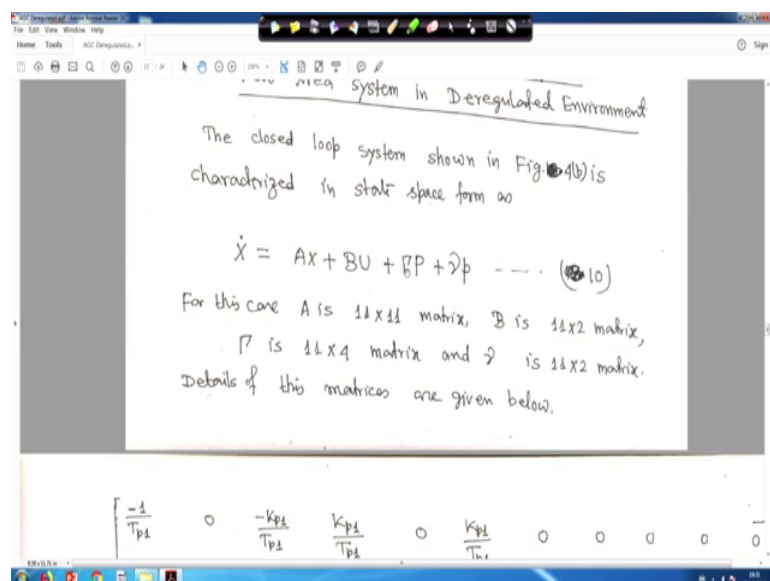 AGC Deregulated.pdf - Adobe Acrobat Reader DC
File Edit View Window Help
Home Tools AGC Deregulated.p... × Sign
Area system in Deregulated Environment
The closed loop system shown in Fig. 4(b) is
characterized in state space form as
Ẋ = AX + BU + ΓP + γp ---- (10)
For this case A is 11×11 matrix, B is 11×2 matrix,
Γ is 11×4 matrix and γ is 11×2 matrix.
Details of this matrices are given below.
-1/Tp1 0 -Kp1/Tp1 Kp1/Tp1 0 Kp1/Tp1 0 0 0 0 0